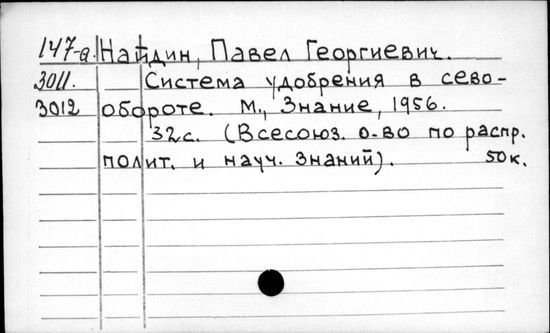 147-а. Найдин, Павел Георгиевич.
3011. Система удобрения в сево-
3012 обороте. М., Знание, 1956.
32с. (Всесоюз. о-во по распр.
полит. и науч. знаний). 50к.